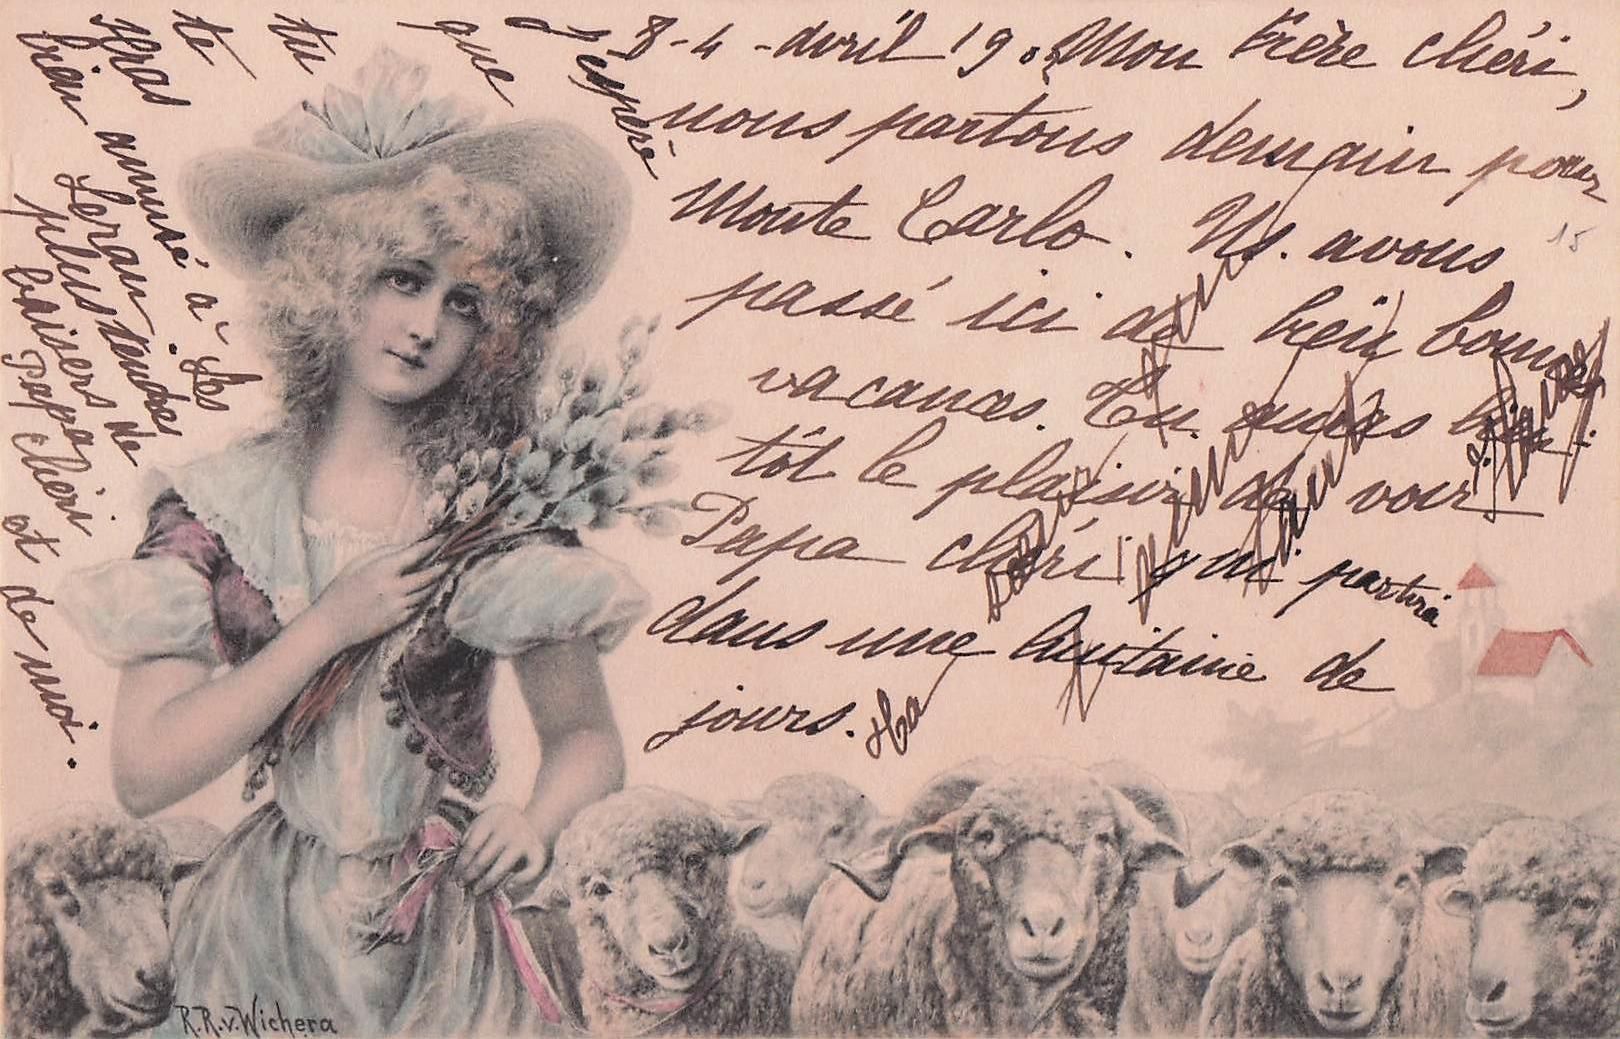 8-4-avril 19. Mon frère chéri,
nous partons demain pour
Monte Carlo. Ns. avons
passé ici de bien bonnes
vacances. Tu auras bien-
tôt le plaisir de voir
Papa chéri qui partira
dans une huitaine de
jours.
J'espère
que
tu
te
seras
bien amusé à
Leran. Les
plus tendres
baisers de
Papa chéri
et de moi.
Ta
15
R.R.v.Wichera